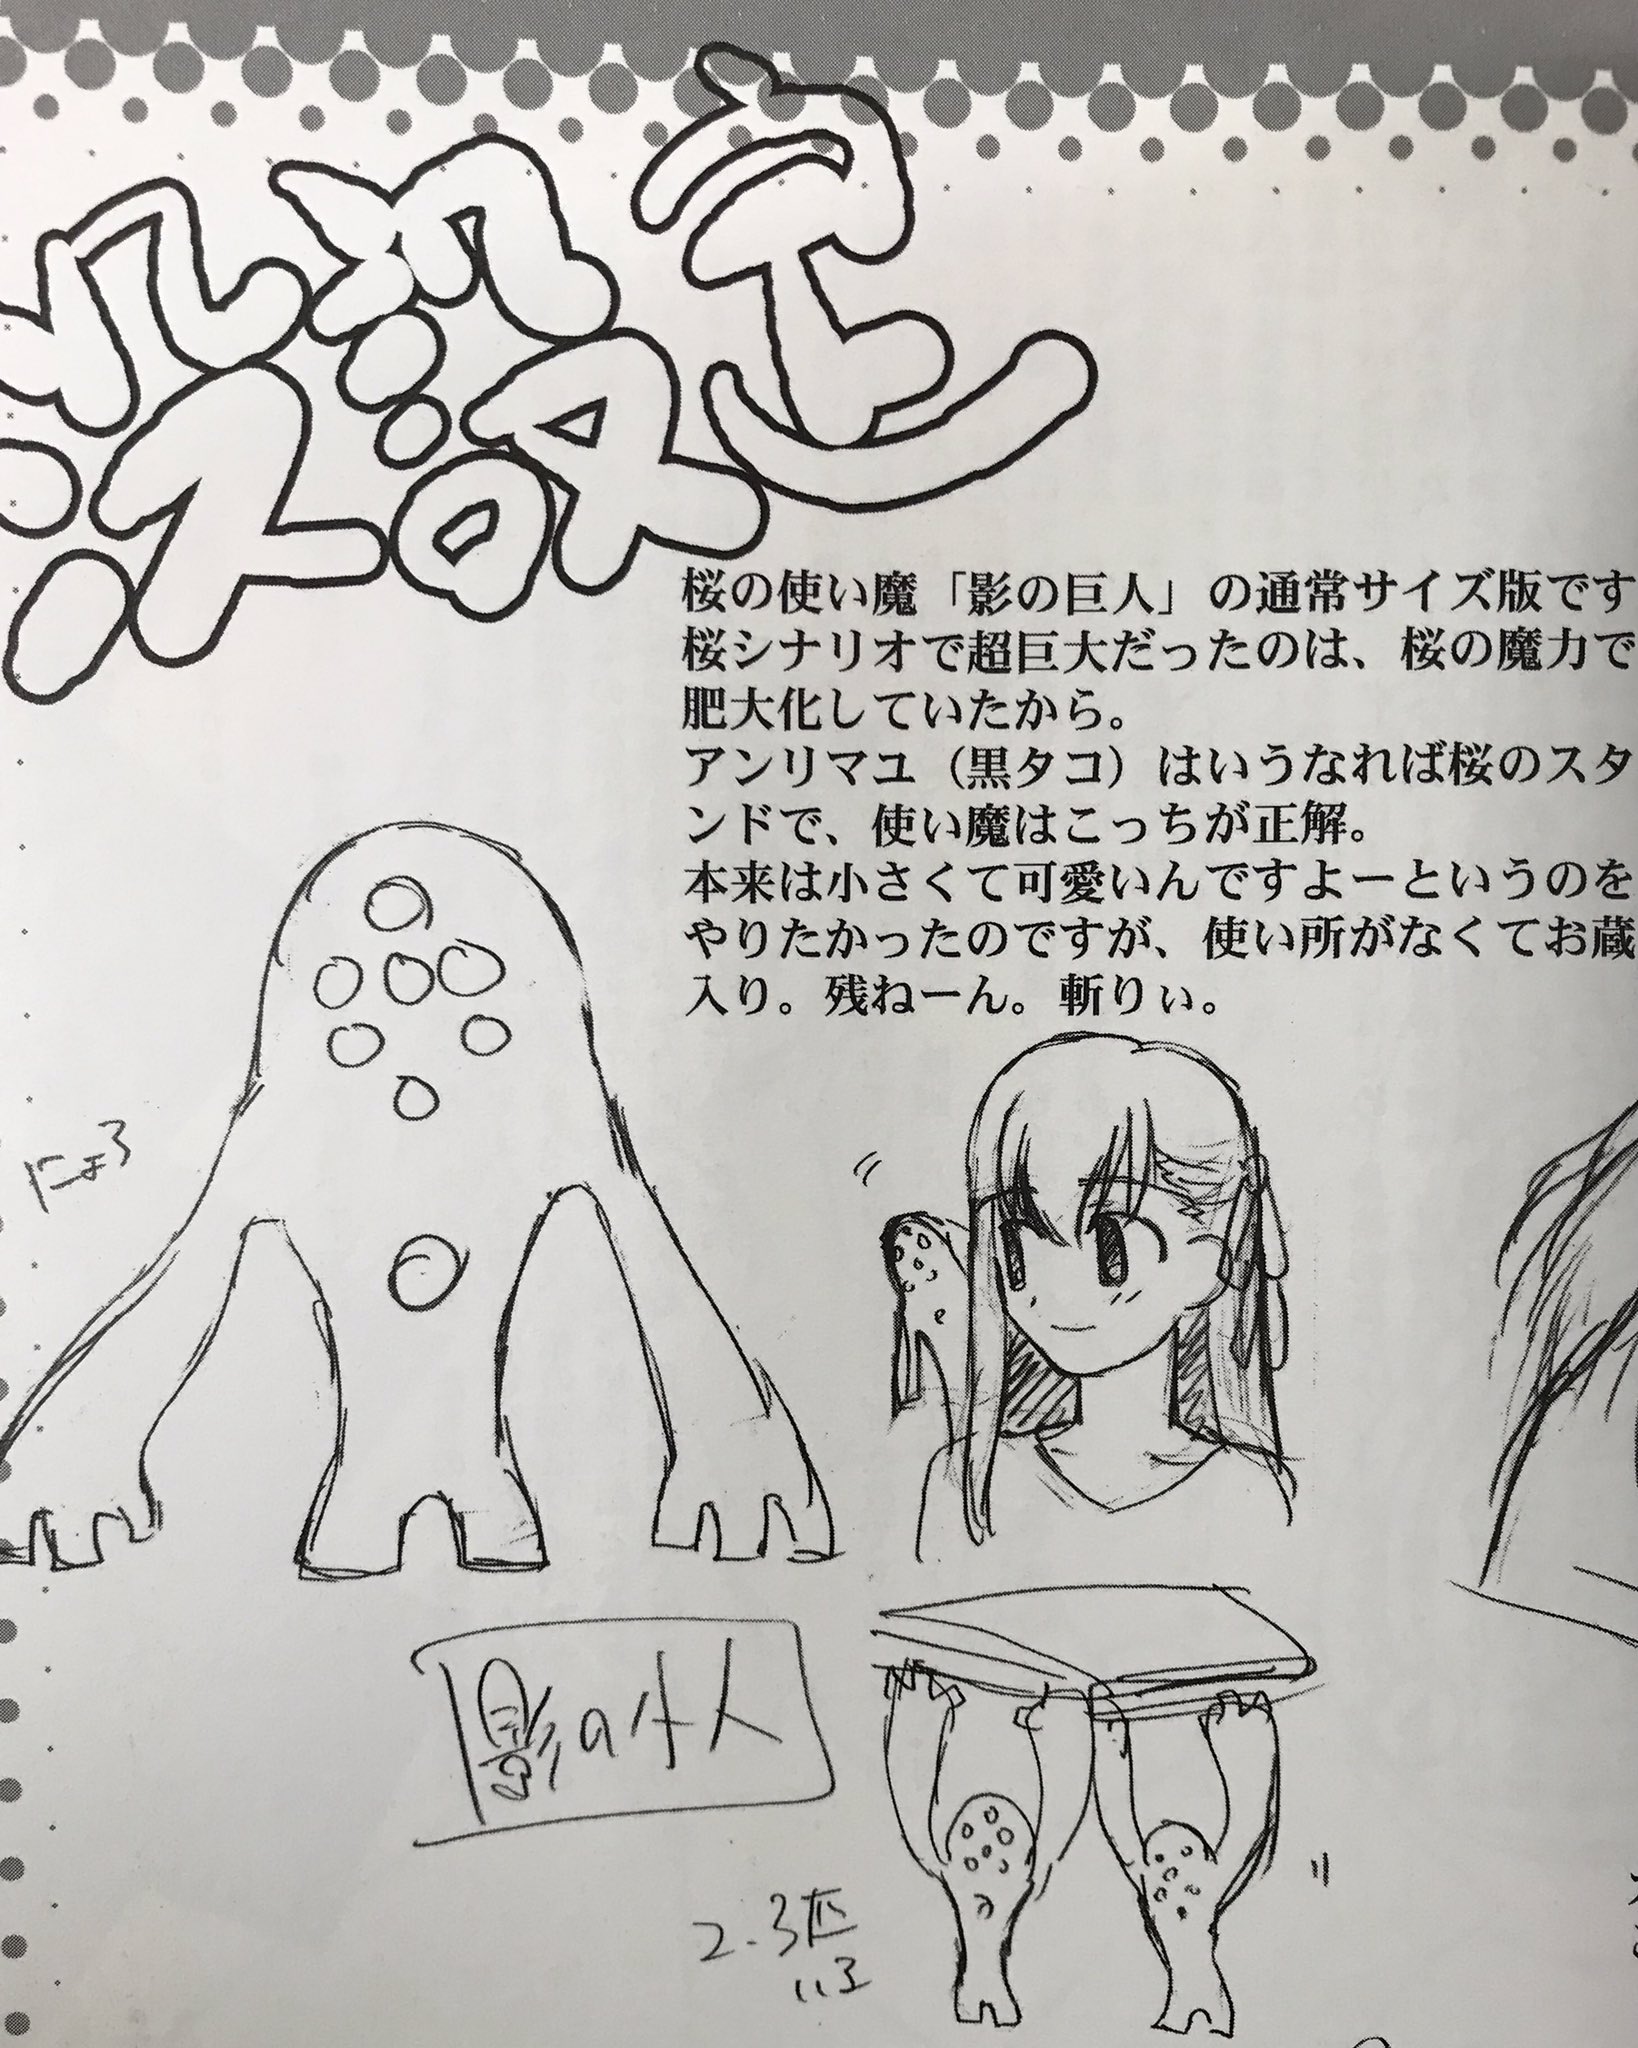 桜の使い魔「影の巨人」の通常サイズ版です
桜シナリオで超巨大だったのは、桜の魔力で
肥大化していたから。
アンリマユ（黒タコ）はいうなれば桜のスタ
ンドで、使い魔はこっちが正解。
本来は小さくて可愛いんですよーというのを
やりたかったのですが、使い所がなくてお蔵
入り。残ねーん。斬りぃ。
にょろ
影の小人
2.3匹
いる